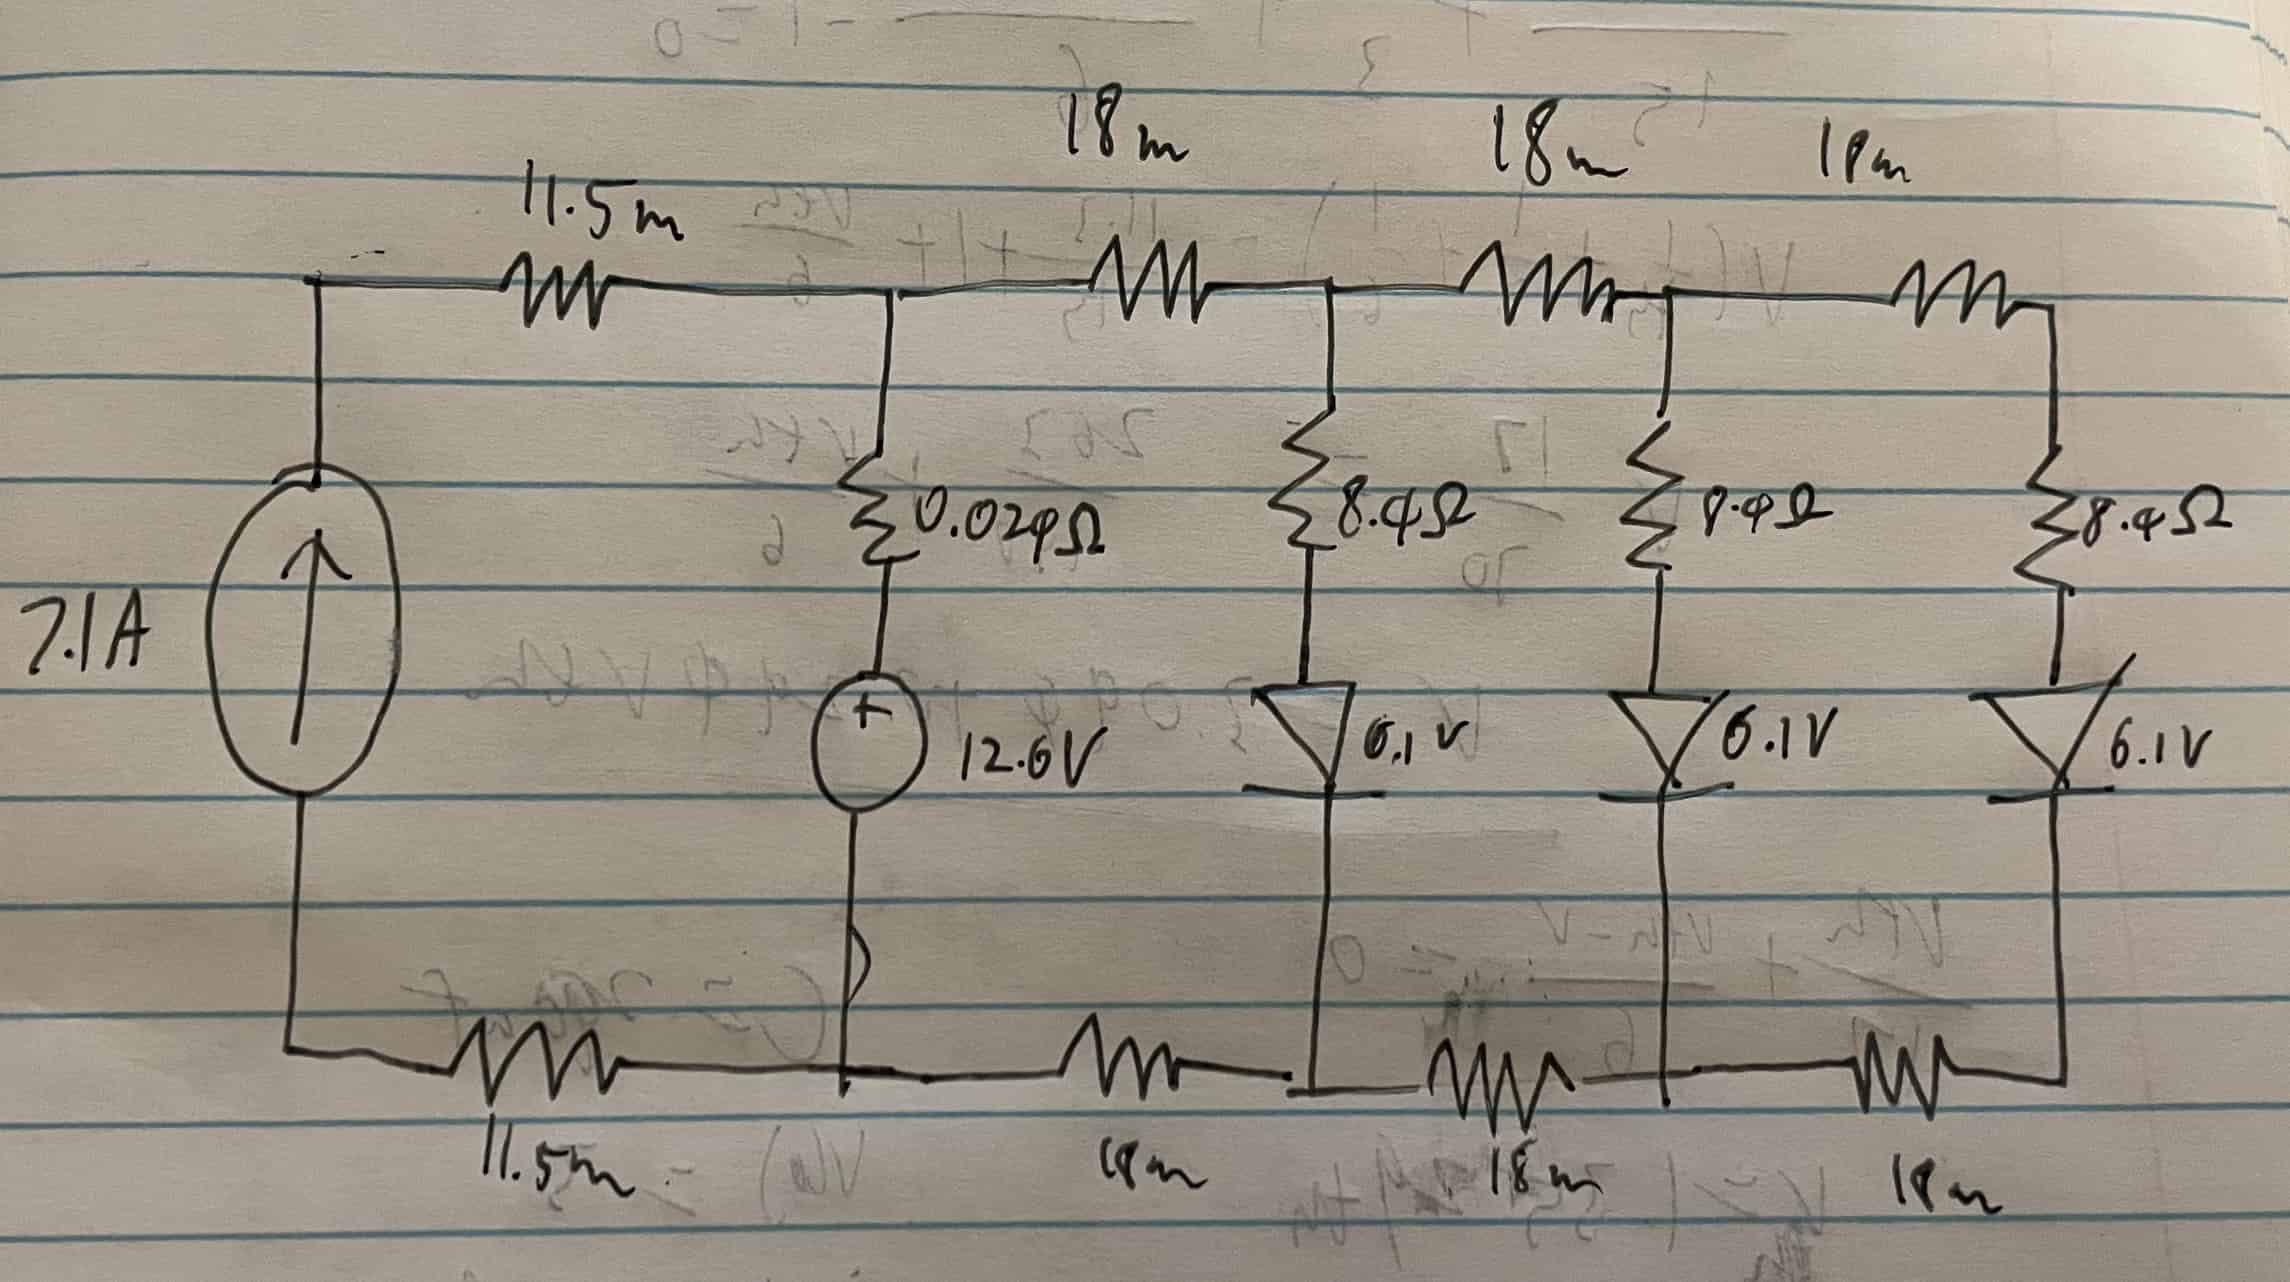 18m 18m 18m
11.5m
0.024Ω 8.4Ω 8.4Ω 8.4Ω
7.1A
+
12.6V 6.1V 6.1V 6.1V
11.5m 18m 18m 18m